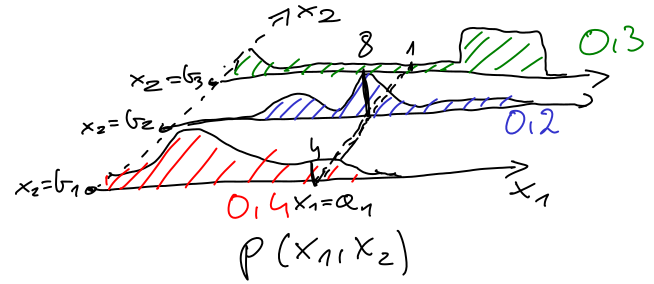 x2
8 1
0,3
x2=b3
x2=b2
0,2
4
x2=b1
0,4 x1=a1
x1
p(x1,x2)